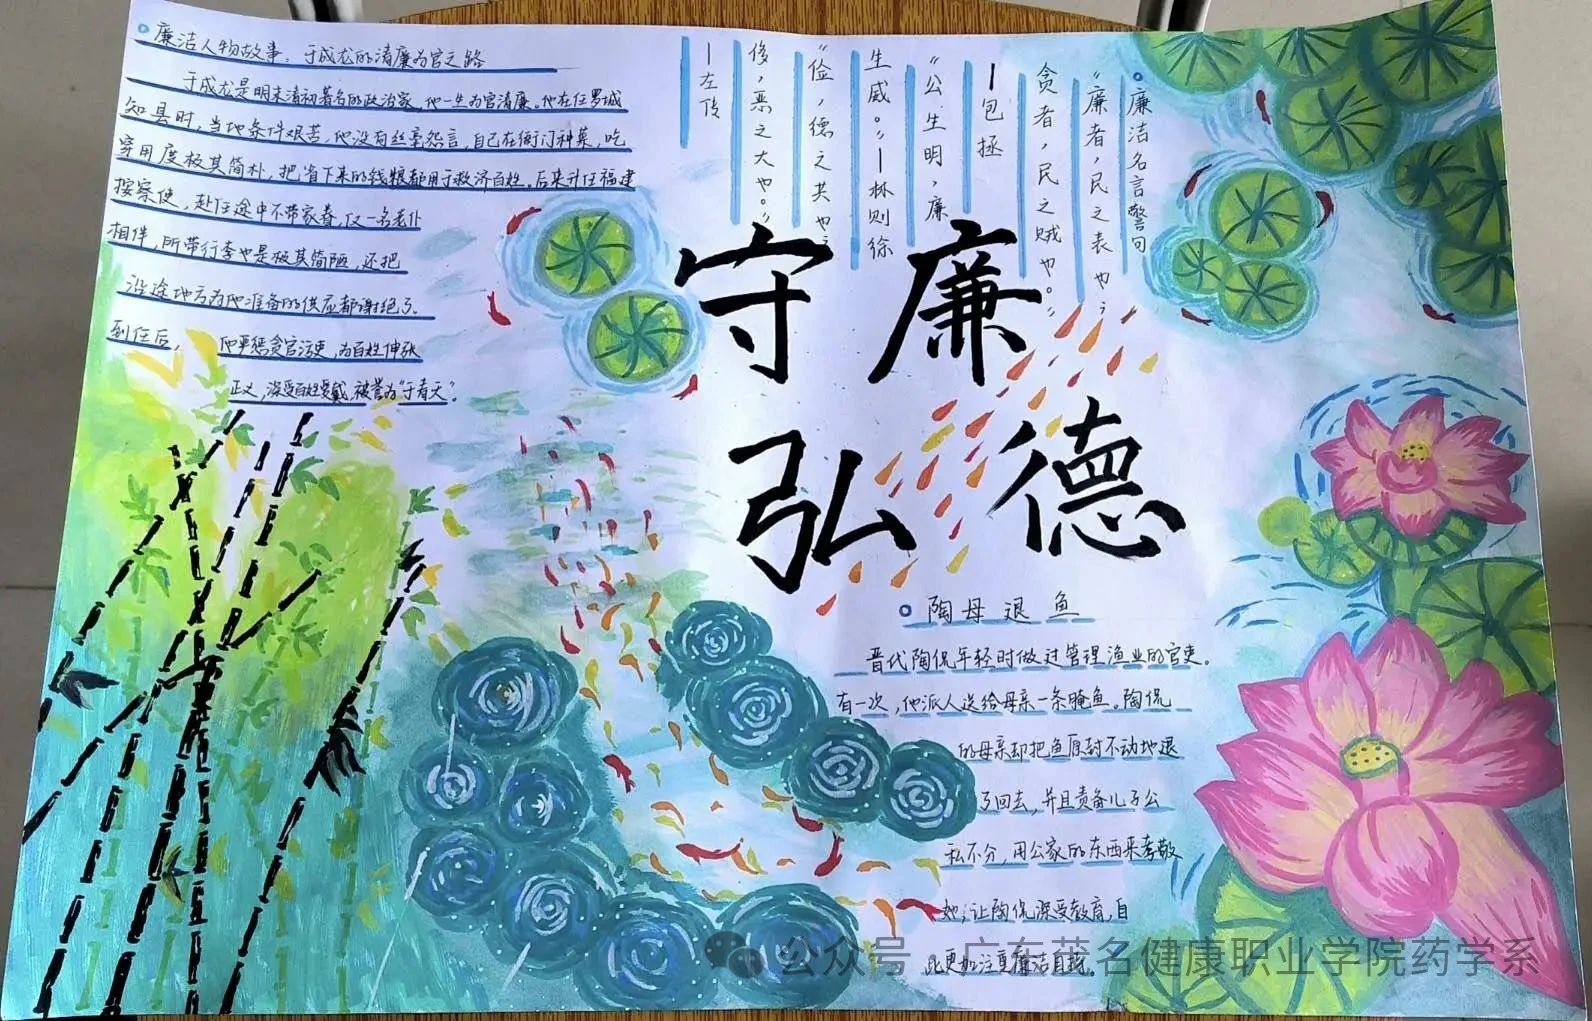 廉洁人物故事：于成龙的清廉为官之路
于成龙是明末清初著名的政治家，他一生为官清廉。他在任罗城
知县时，当地条件艰苦，他没有丝毫怨言，自己在衙门种菜，吃
穿用度极其简朴，把省下来的钱粮都用于救济百姓。后来升任福建
按察使，赴任途中不带家眷，仅一名老仆
相伴，所带行李也是极其简陋，还把
沿途地方为他准备的供应都谢绝了。
到任后，他严惩贪官污吏，为百姓伸张
正义，深受百姓爱戴，被誉为“于青天”。
廉洁名言警句
“廉者，民之表也；
贪者，民之贼也。”
—包拯
“公生明，廉
生威。”—林则徐
“俭，德之共也；
侈，恶之大也。”
—左传
守廉
弘德
陶母退鱼
晋代陶侃年轻时做过管理渔业的官吏。
有一次，他派人送给母亲一条腌鱼。陶侃
的母亲却把鱼原封不动地退
了回去，并且责备儿子公
私不分，用公家的东西来孝敬
她，让陶侃深受教育，自
此更加注重廉洁自律。
公众号·广东茂名健康职业学院药学系